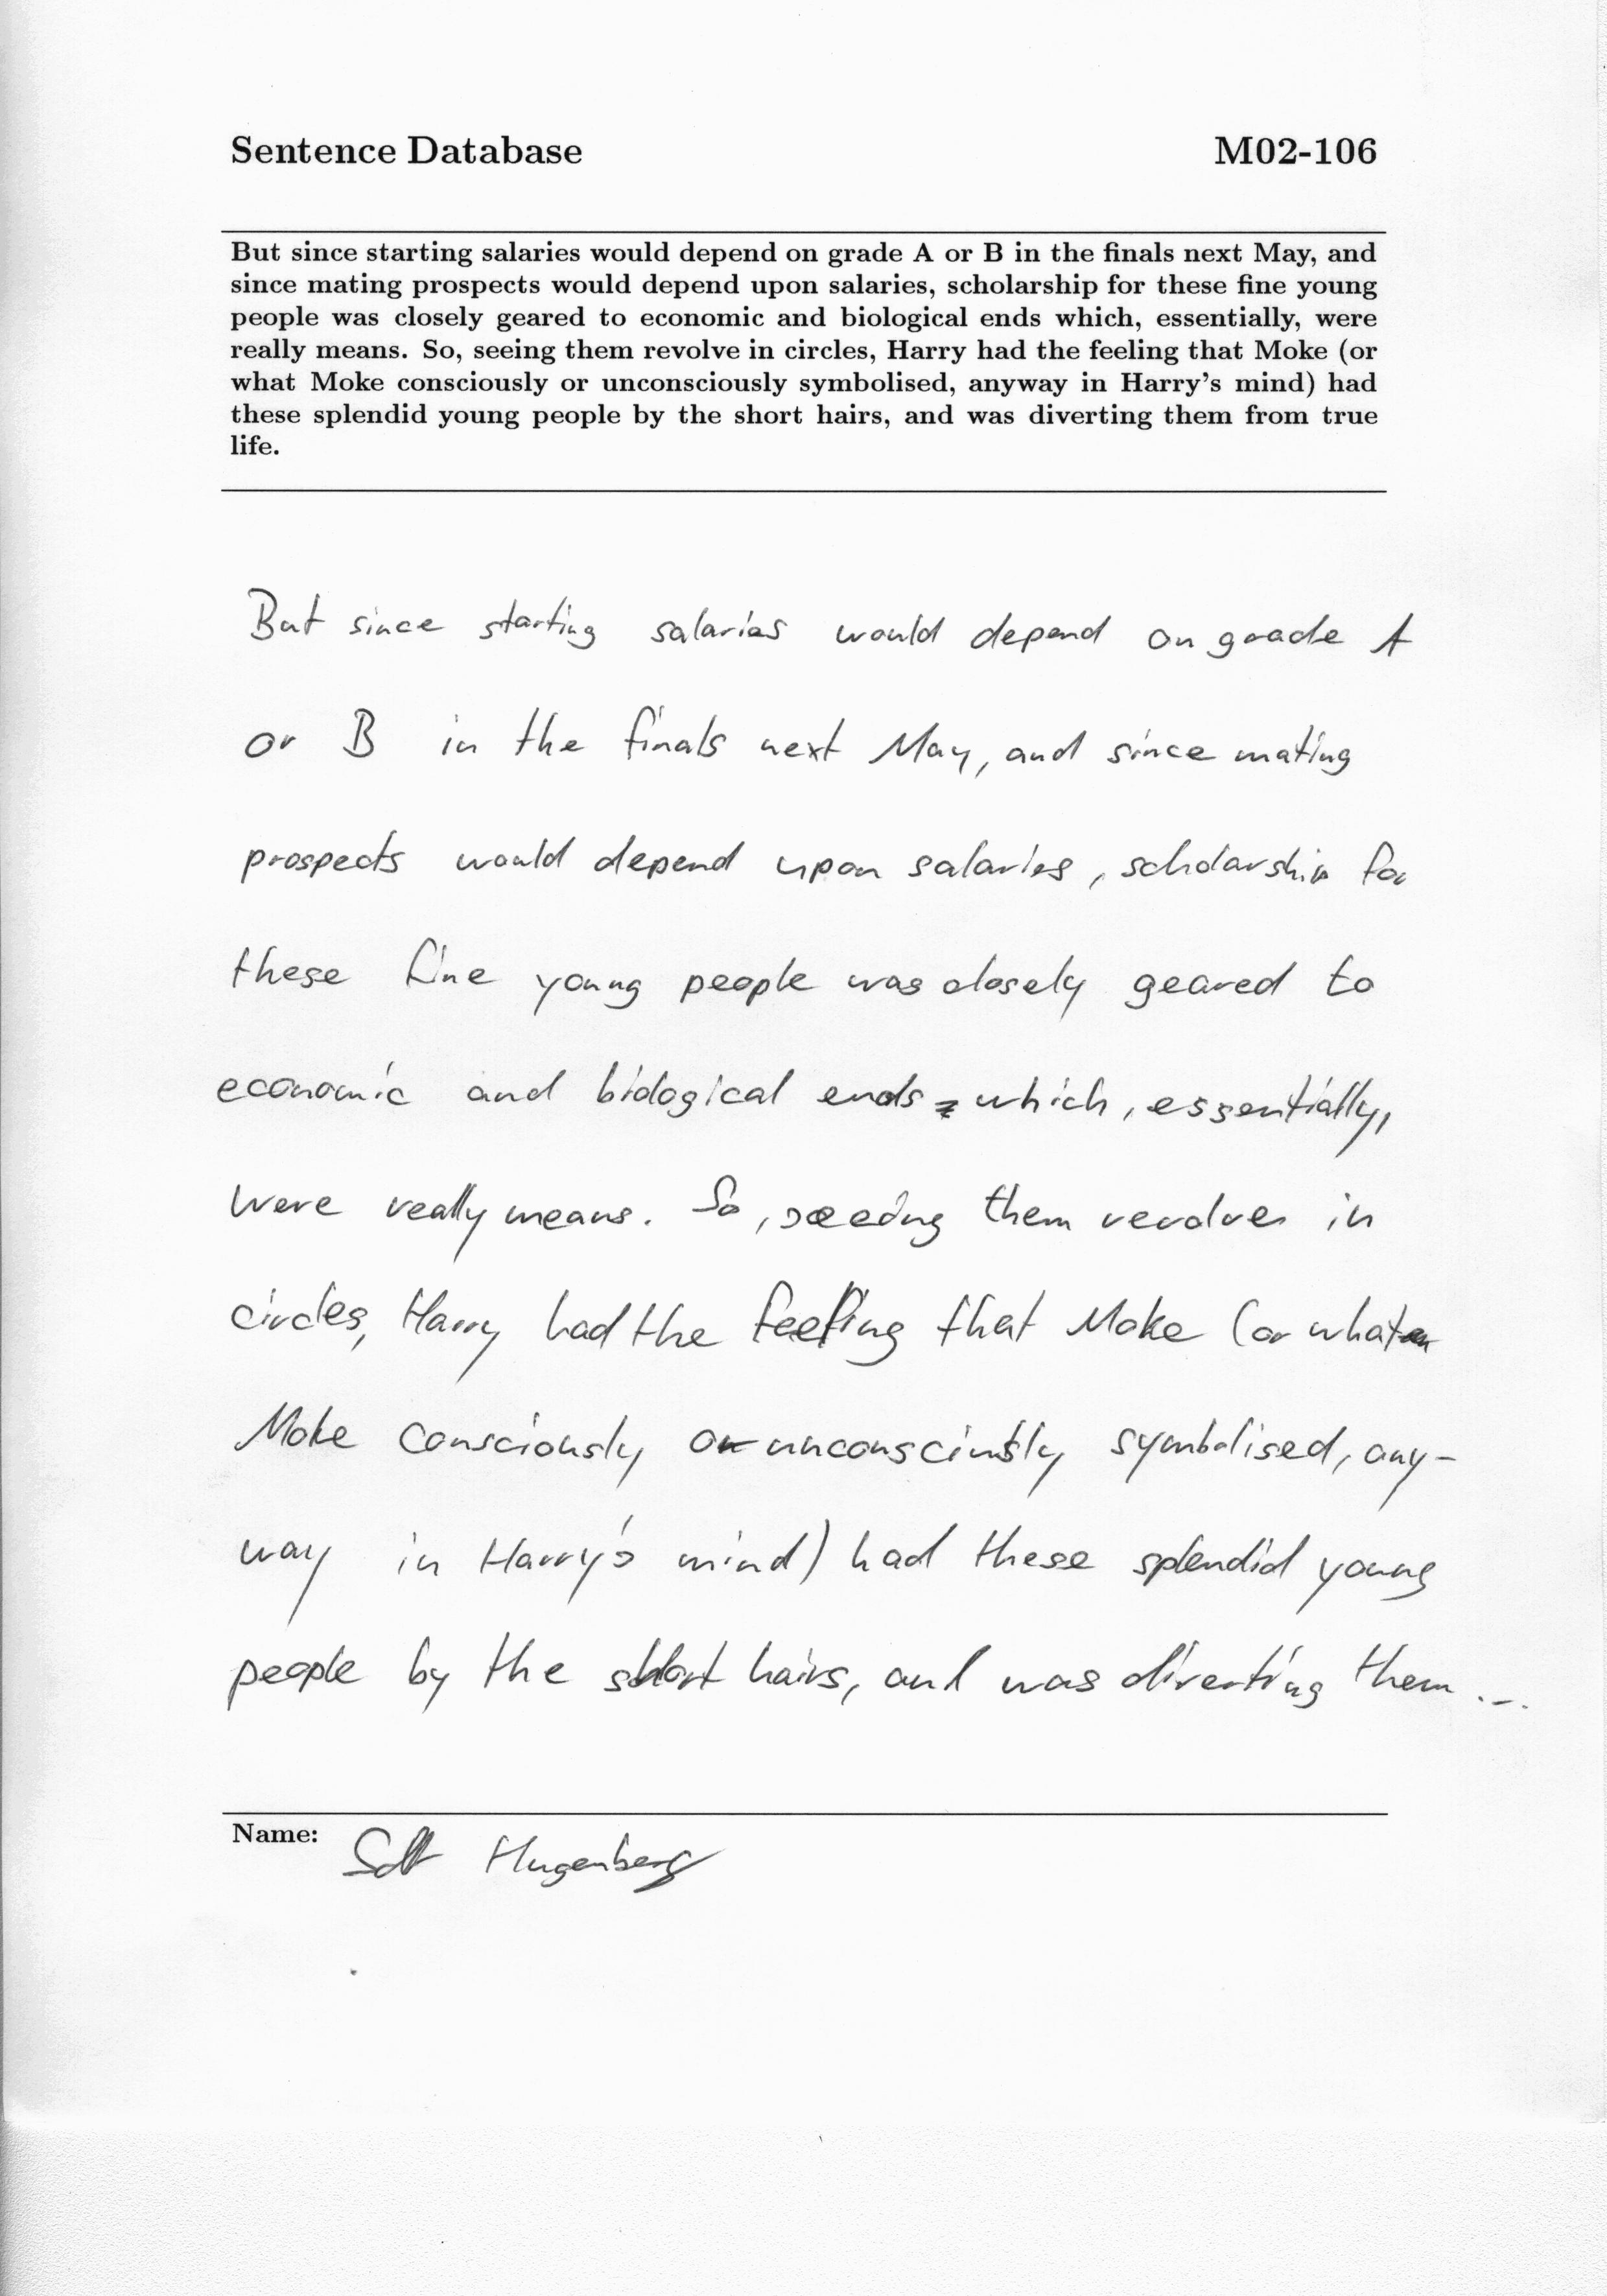 Sentence Database M02-106
But since starting salaries would depend on grade A or B in the finals next May, and
since mating prospects would depend upon salaries, scholarship for these fine young
people was closely geared to economic and biological ends which, essentially, were
really means. So, seeing them revolve in circles, Harry had the feeling that Moke (or
what Moke consciously or unconsciously symbolised, anyway in Harry's mind) had
these splendid young people by the short hairs, and was diverting them from true
life.
But since starting salaries would depend on grade A
or B in the finals next May, and since mating
prospects would depend upon salaries, scholarship for
these fine young people was closely geared to
economic and biological ends which, essentially,
were really means. So, seeing them revolve in
circles, Harry had the feeling that Moke (or what
Moke consciously or unconsciously symbolised, any-
way in Harry's mind) had these splendid young
people by the short hairs, and was diverting them ...
Name: Hugenberg